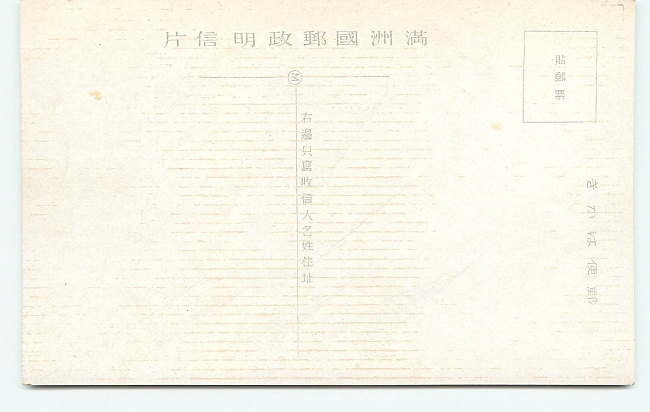 滿洲國郵政明信片
M
右邊只寫收信人名姓住址
郵便はかき